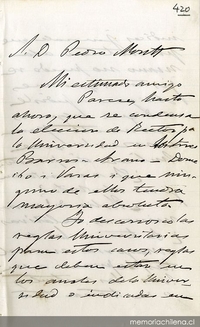 420
S. D. Pedro Montt
Mi estimado amigo
Parece, hasta
ahora, que se condensa
la eleccion de Rector pa
la Universidad en
Barros Arana o Dome
yko o Varas i que nin
guno de ellos tendrá
mayoria absoluta
Yo desconozco las
reglas Universitarias
para estos casos, reglas
que deben estar en
los anales de la Univer
sidad o indicadas en
memoriachilena.cl